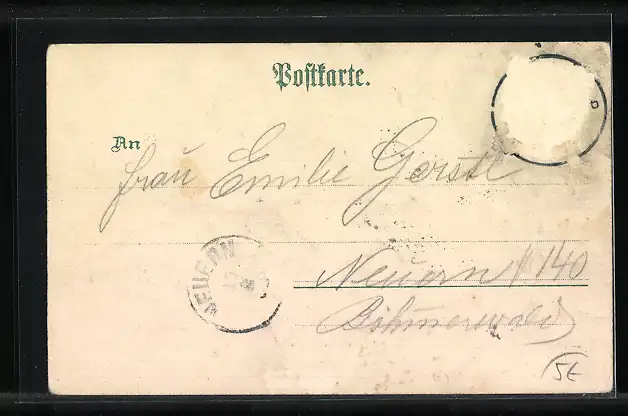 Postkarte.
An
Frau Emilie Gerstl
Neuern № 140
Böhmerwald
NEUERN
5E